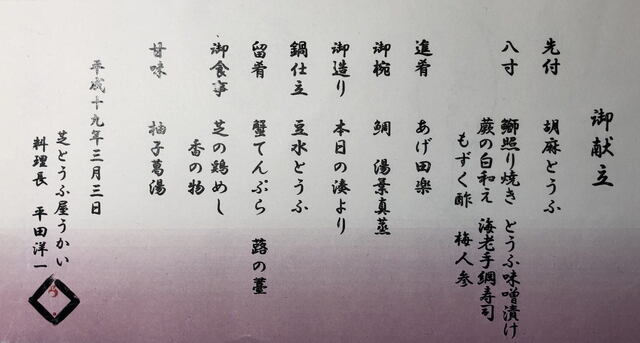 御献立
先付　胡麻とうふ
八寸　鰤照り焼き　とうふ味噌漬け
蕨の白和え　海老手綱寿司
もずく酢　梅人参
進肴　あげ田楽
御椀　鯛　湯葉真蒸
御造り　本日の湊より
鍋仕立　豆水とうふ
留肴　蟹てんぷら　蕗の薹
御食事　芝の鶏めし
香の物
甘味　柚子葛湯
平成十九年三月三日
芝とうふ屋うかい
料理長　平田洋一